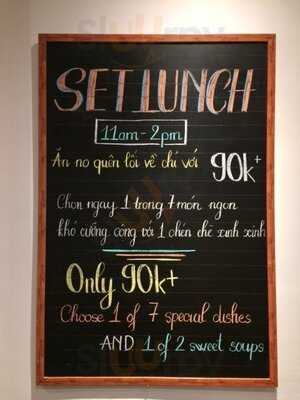 SET LUNCH
11am - 2pm
Ăn no quên lối về chỉ với 90k+
Chọn ngay 1 trong 7 món ngon
khó cưỡng cộng với 1 chén chè xinh xinh
Only 90k+
Choose 1 of 7 special dishes
AND 1 of 2 sweet soups